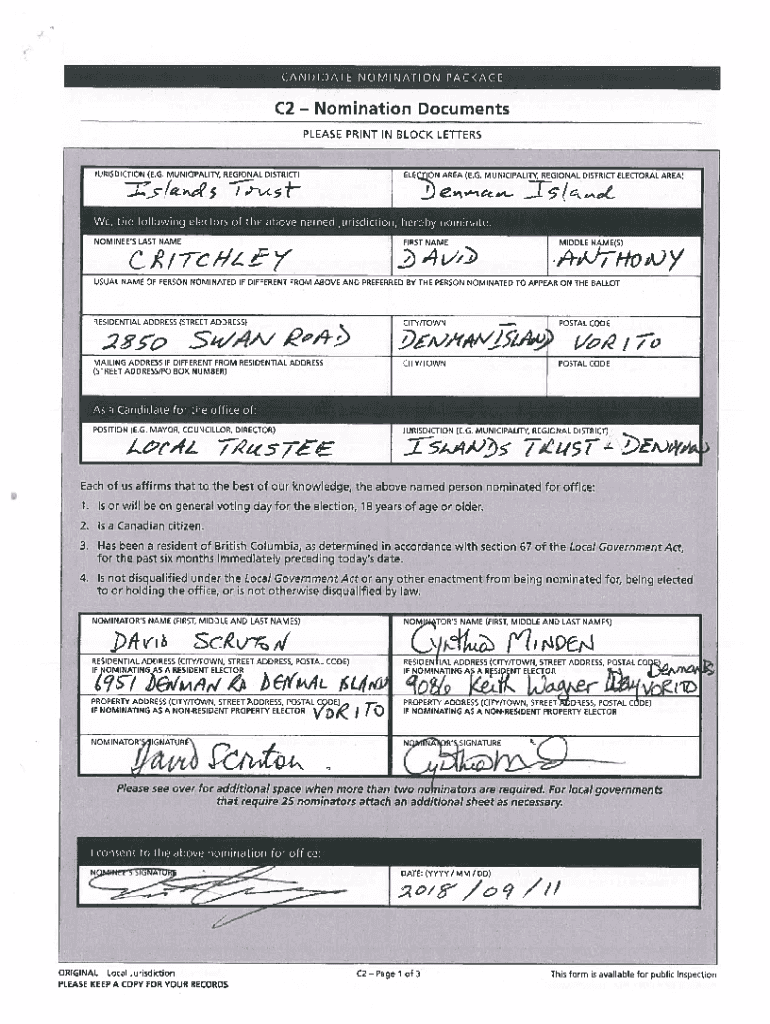 CANDIDATE NOMINATION PACKAGE
C2 – Nomination Documents
PLEASE PRINT IN BLOCK LETTERS
JURISDICTION (E.G. MUNICIPALITY, REGIONAL DISTRICT) ELECTION AREA (E.G. MUNICIPALITY, REGIONAL DISTRICT ELECTORAL AREA)
Islands Trust Denman Island
We, the following electors of the above named jurisdiction, hereby nominate:
NOMINEE'S LAST NAME FIRST NAME MIDDLE NAME(S)
CRITCHLEY DAVID ANTHONY
USUAL NAME OF PERSON NOMINATED IF DIFFERENT FROM ABOVE AND PREFERRED BY THE PERSON NOMINATED TO APPEAR ON THE BALLOT
RESIDENTIAL ADDRESS (STREET ADDRESS) CITY/TOWN POSTAL CODE
2850 SWAN ROAD DENMAN ISLAND V0R 1T0
MAILING ADDRESS IF DIFFERENT FROM RESIDENTIAL ADDRESS CITY/TOWN POSTAL CODE
(STREET ADDRESS/PO BOX NUMBER)
As a Candidate for the office of:
POSITION (E.G. MAYOR, COUNCILLOR, DIRECTOR) JURISDICTION (E.G. MUNICIPALITY, REGIONAL DISTRICT)
LOCAL TRUSTEE ISLANDS TRUST - DENMAN
Each of us affirms that to the best of our knowledge, the above named person nominated for office:
1. Is or will be on general voting day for the election, 18 years of age or older.
2. Is a Canadian citizen.
3. Has been a resident of British Columbia, as determined in accordance with section 67 of the Local Government Act,
for the past six months immediately preceding today's date.
4. Is not disqualified under the Local Government Act or any other enactment from being nominated for, being elected
to or holding the office, or is not otherwise disqualified by law.
NOMINATOR'S NAME (FIRST, MIDDLE AND LAST NAMES) NOMINATOR'S NAME (FIRST, MIDDLE AND LAST NAMES)
DAVID SCRUTON Cynthia MINDEN
RESIDENTIAL ADDRESS (CITY/TOWN, STREET ADDRESS, POSTAL CODE) RESIDENTIAL ADDRESS (CITY/TOWN, STREET ADDRESS, POSTAL CODE)
IF NOMINATING AS A RESIDENT ELECTOR IF NOMINATING AS A RESIDENT ELECTOR Denman Is
6951 DENMAN RD DENMAL ISLAND 9086 Keith Wagner Way V0R1T0
PROPERTY ADDRESS (CITY/TOWN, STREET ADDRESS, POSTAL CODE) PROPERTY ADDRESS (CITY/TOWN, STREET ADDRESS, POSTAL CODE)
IF NOMINATING AS A NON-RESIDENT PROPERTY ELECTOR V0R 1T0 IF NOMINATING AS A NON-RESIDENT PROPERTY ELECTOR
NOMINATOR'S SIGNATURE NOMINATOR'S SIGNATURE
David Scruton
Please see over for additional space when more than two nominators are required. For local governments
that require 25 nominators attach an additional sheet as necessary.
I consent to the above nomination for office:
NOMINEE'S SIGNATURE DATE: (YYYY / MM / DD)
2018 / 09 / 11
ORIGINAL – Local Jurisdiction C2 – Page 1 of 3 This form is available for public inspection
PLEASE KEEP A COPY FOR YOUR RECORDS